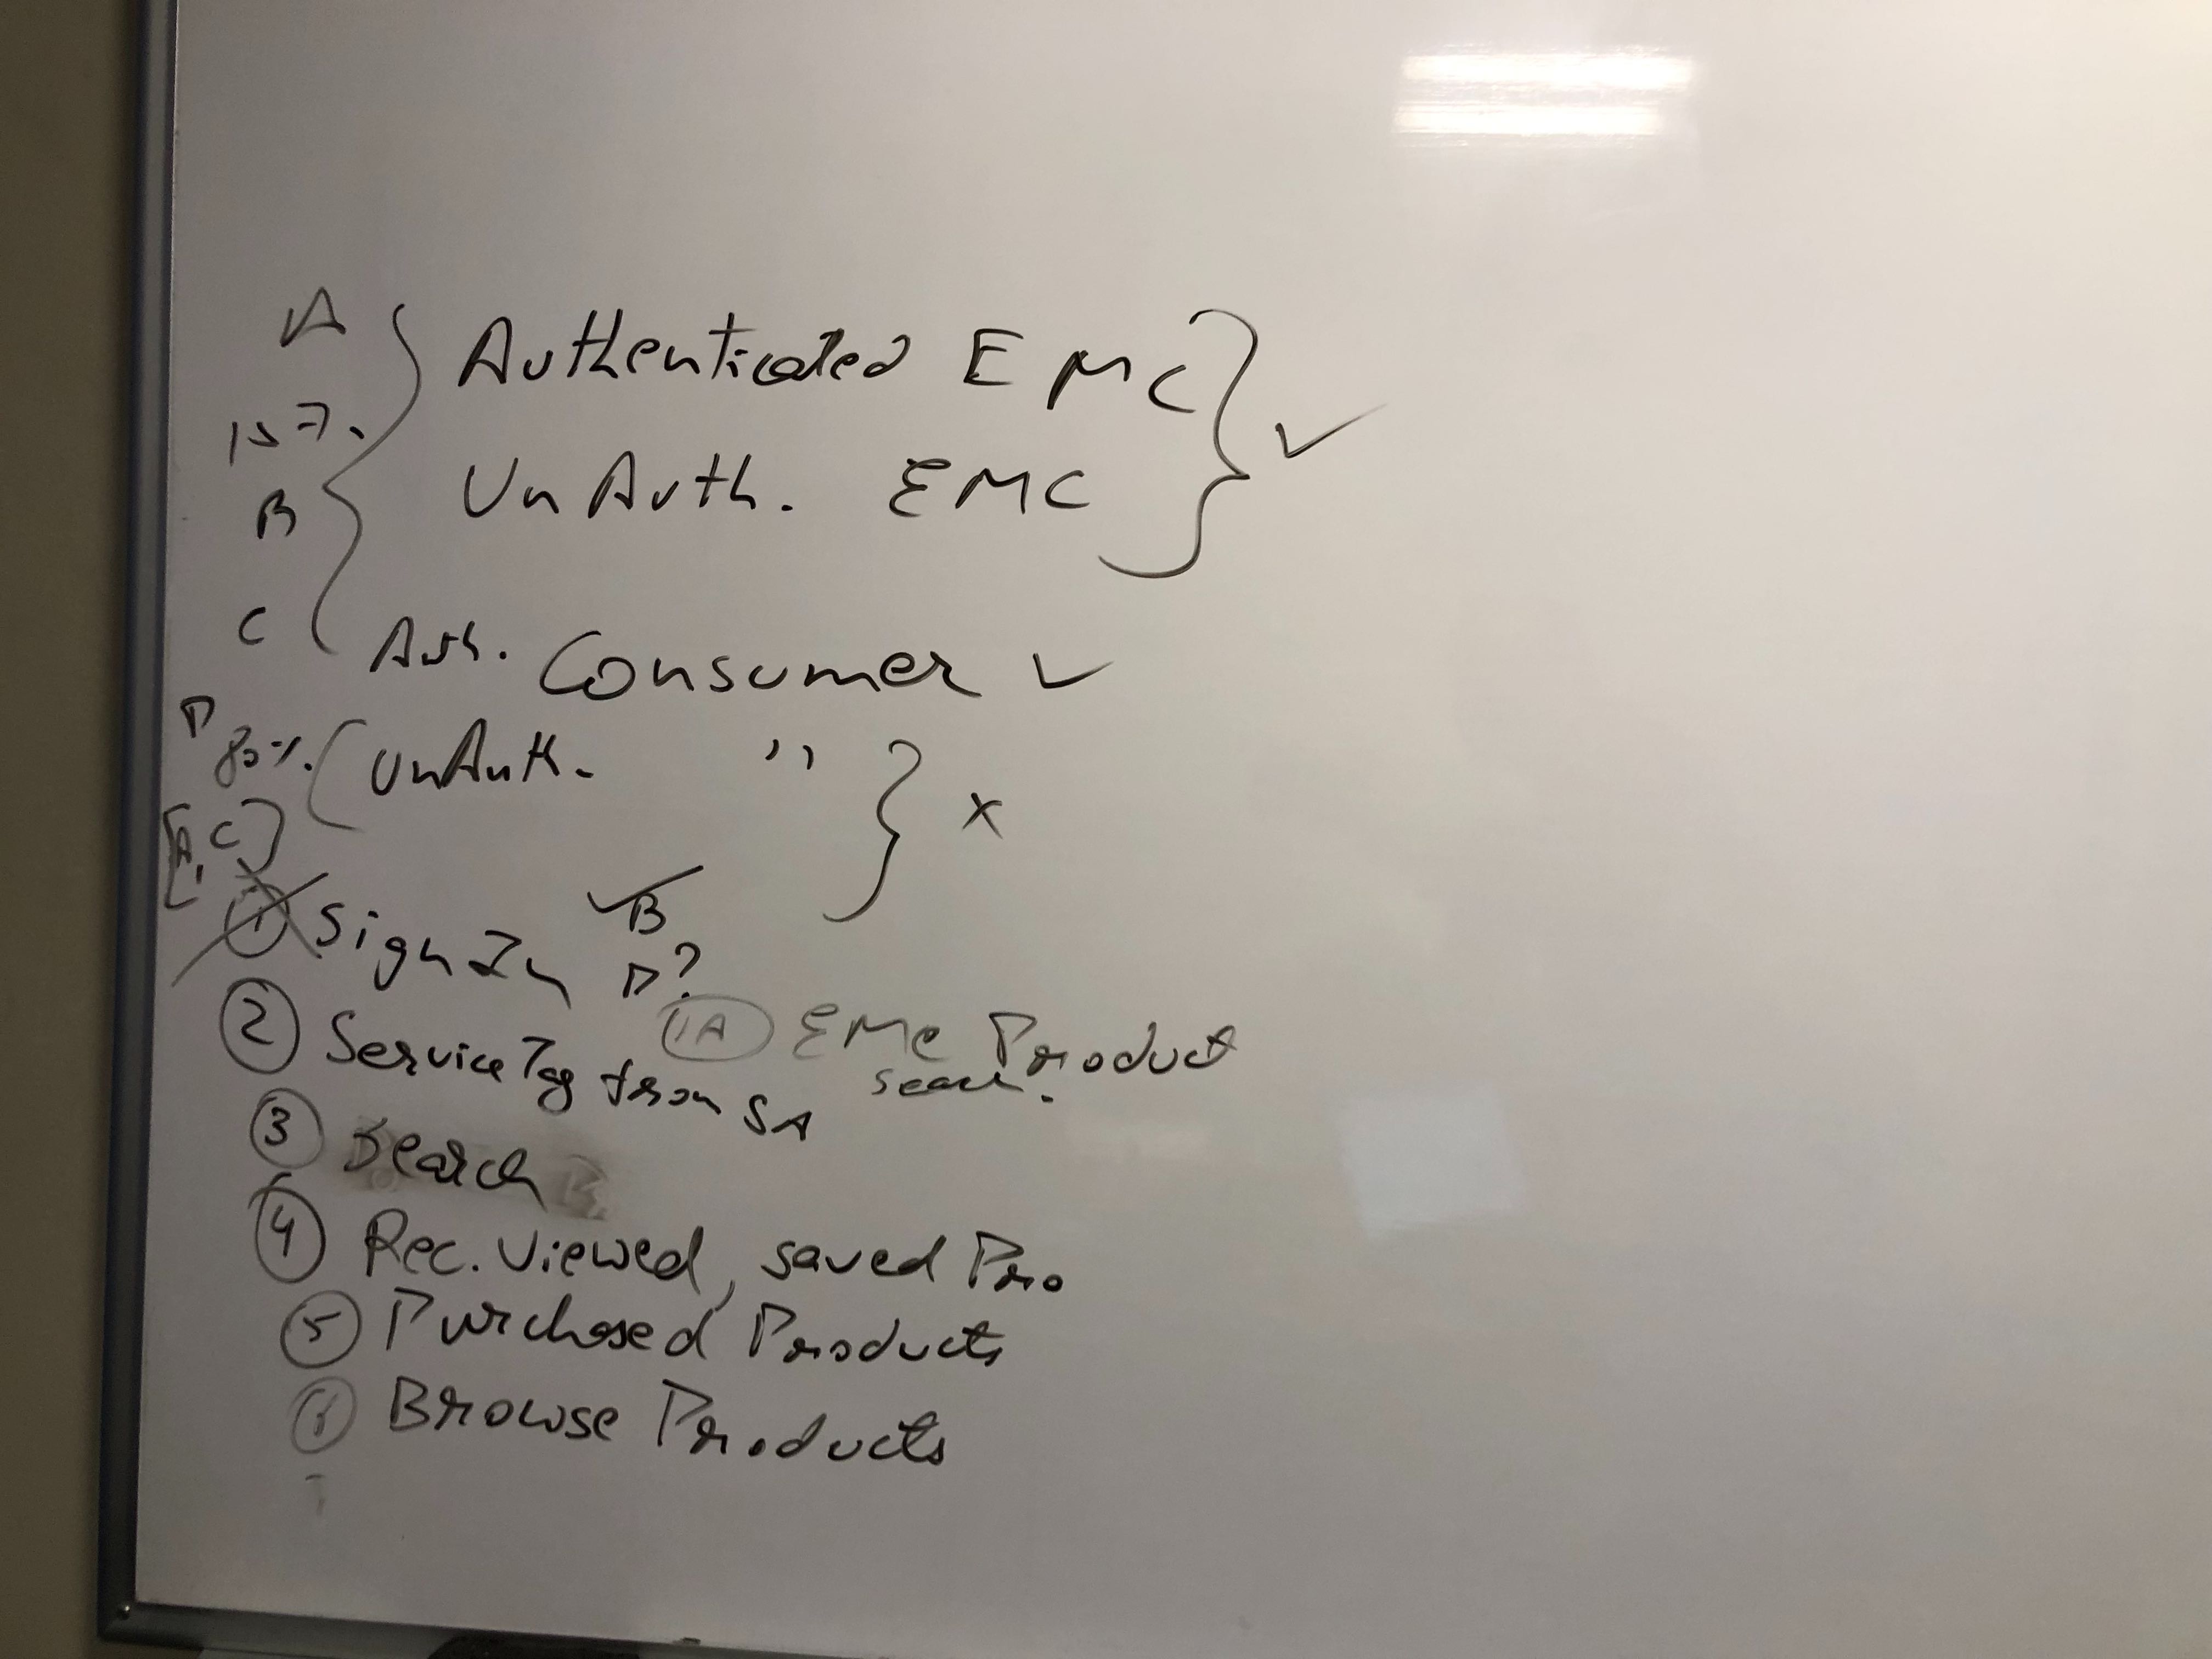 A Authenticated EMC ✓
15%.
B UnAuth. EMC
C Auth. Consumer ✓
D 80%. UnAuth. '' X
[A, C]
① Sign In ✓ B
D?
1A EMC Product
② Service Tag from SA search.
③ Search
④ Rec. Viewed, saved Pro
⑤ Purchased Products
⑥ Browse Products